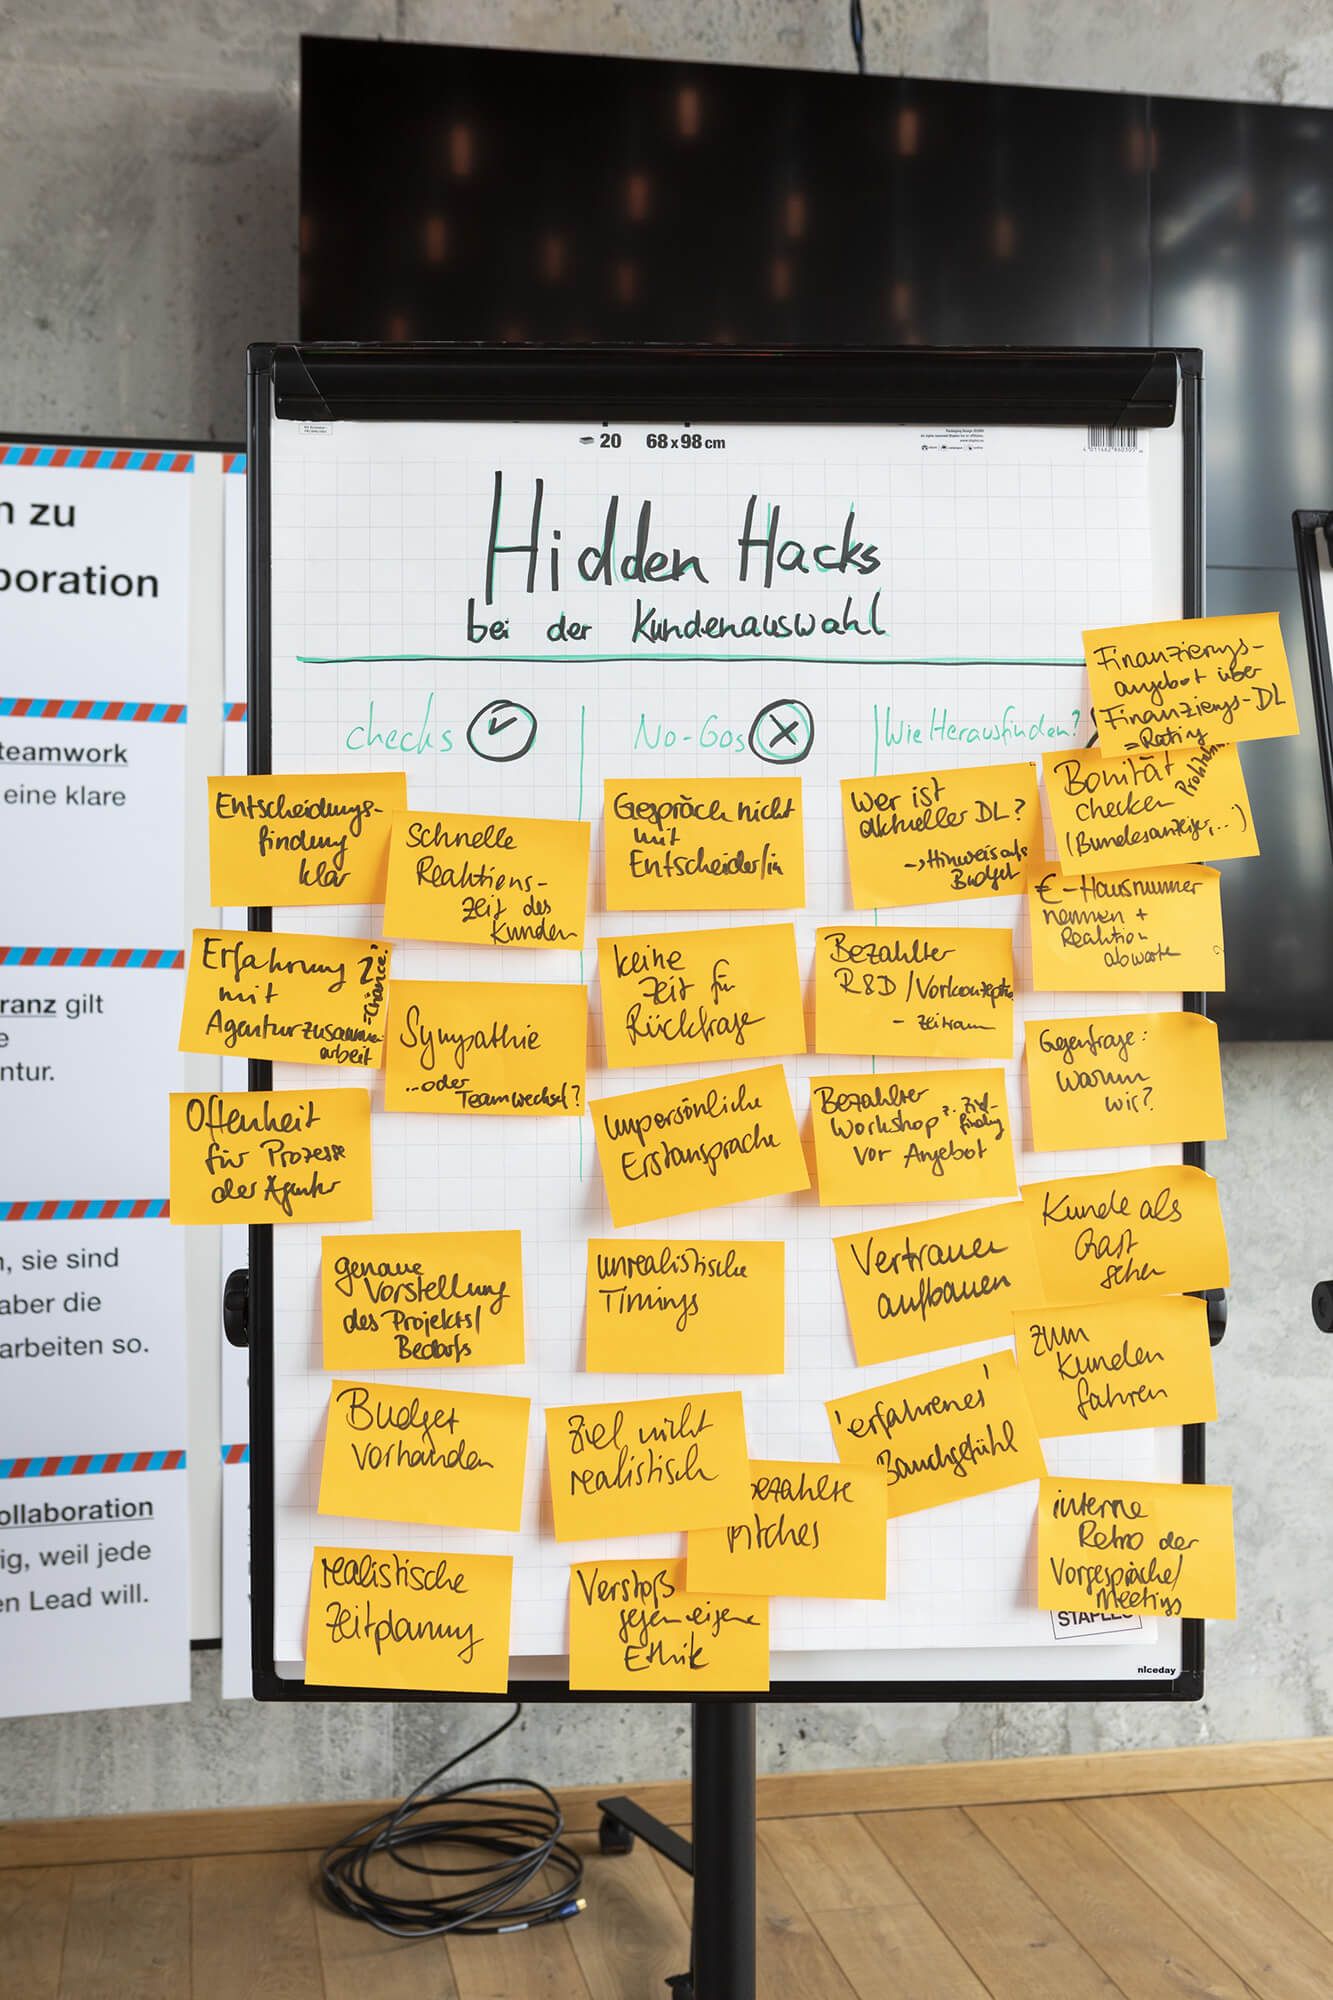 20 68 x 98 cm
4 011662 860305
Hidden Hacks
bei der Kundenauswahl
checks
No-Gos
Wie Herausfinden?
Entscheidungs-
findung
klar
Schnelle
Reaktions-
zeit des
Kunden
Erfahrung
mit
Agenturzusammen-
arbeit
=Chance?
Sympathie
...oder
Teamwechsel?
Offenheit
für Prozesse
der Agentur
genaue
Vorstellung
des Projekts/
Bedarfs
Budget
vorhanden
realistische
Zeitplanung
Gespräch nicht
mit
Entscheider/in
keine
Zeit für
Rückfrage
unpersönliche
Erstansprache
unrealistische
Timings
Ziel nicht
realistisch
bezahlte
Pitches
Verstoß
gegen eigene
Ethik
Wer ist
aktueller DL?
→ Hinweis aufs
Budget
Bezahlter
R&D / Vorkonzeption
- Zeitraum
Bezahlter
Workshop z. Ziel-
findung
vor Angebot
Vertrauen
aufbauen
'erfahrenes'
Bauchgefühl
Finanzierungs-
angebot über
Finanzierungs-DL
= Rating
Bonität
checken
(Bundesanzeiger,...)
€-Hausnummer
nennen +
Reaktion
abwarten
Gegenfrage:
warum
wir?
Kunde als
Gast
sehen
zum
Kunden
fahren
interne
Retro der
Vorgespräche/
Meetings
STAPLES
niceday
n zu
boration
teamwork
eine klare
ranz gilt
e
ntur.
n, sie sind
aber die
arbeiten so.
ollaboration
ig, weil jede
en Lead will.